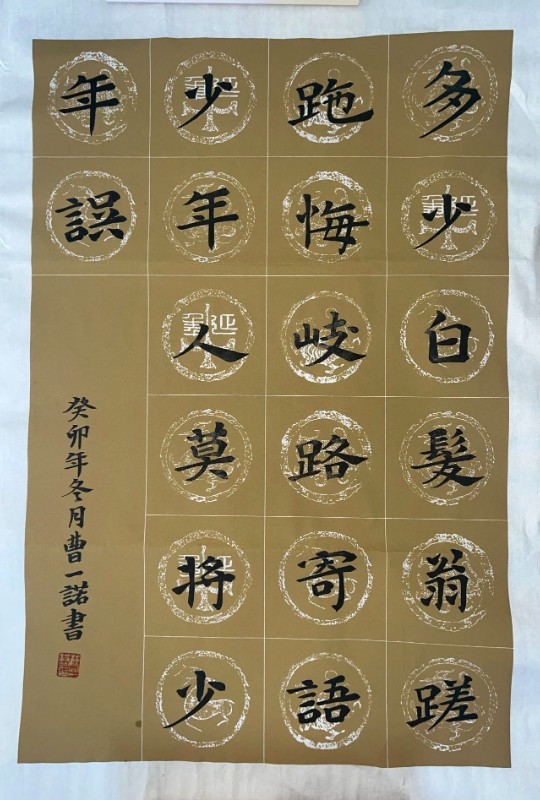 多少白髮翁蹉
跎悔岐路寄語
少年人莫將少
年誤
癸卯年冬月曹一諾書